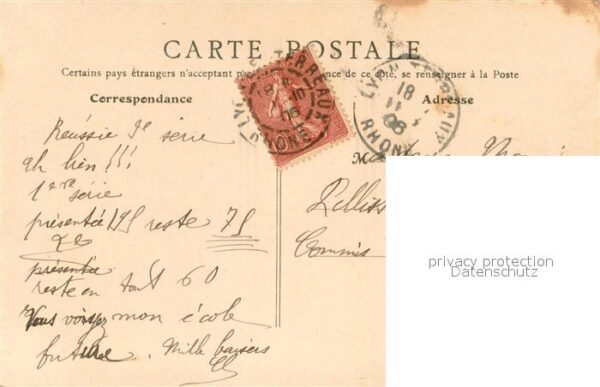 CARTE POSTALE
Certains pays étrangers n'acceptant pas de correspondance de ce côté, se renseigner à la Poste
Correspondance
Adresse
Réussie 3e série
ah bien !!!
1ère série
présentée 195 reste 75
2e
présentée
reste en tout 60
Vous voyez mon école
future. Mille baisers
M
Commis
LYON TERREAUX
RHONE
privacy protection
Datenschutz